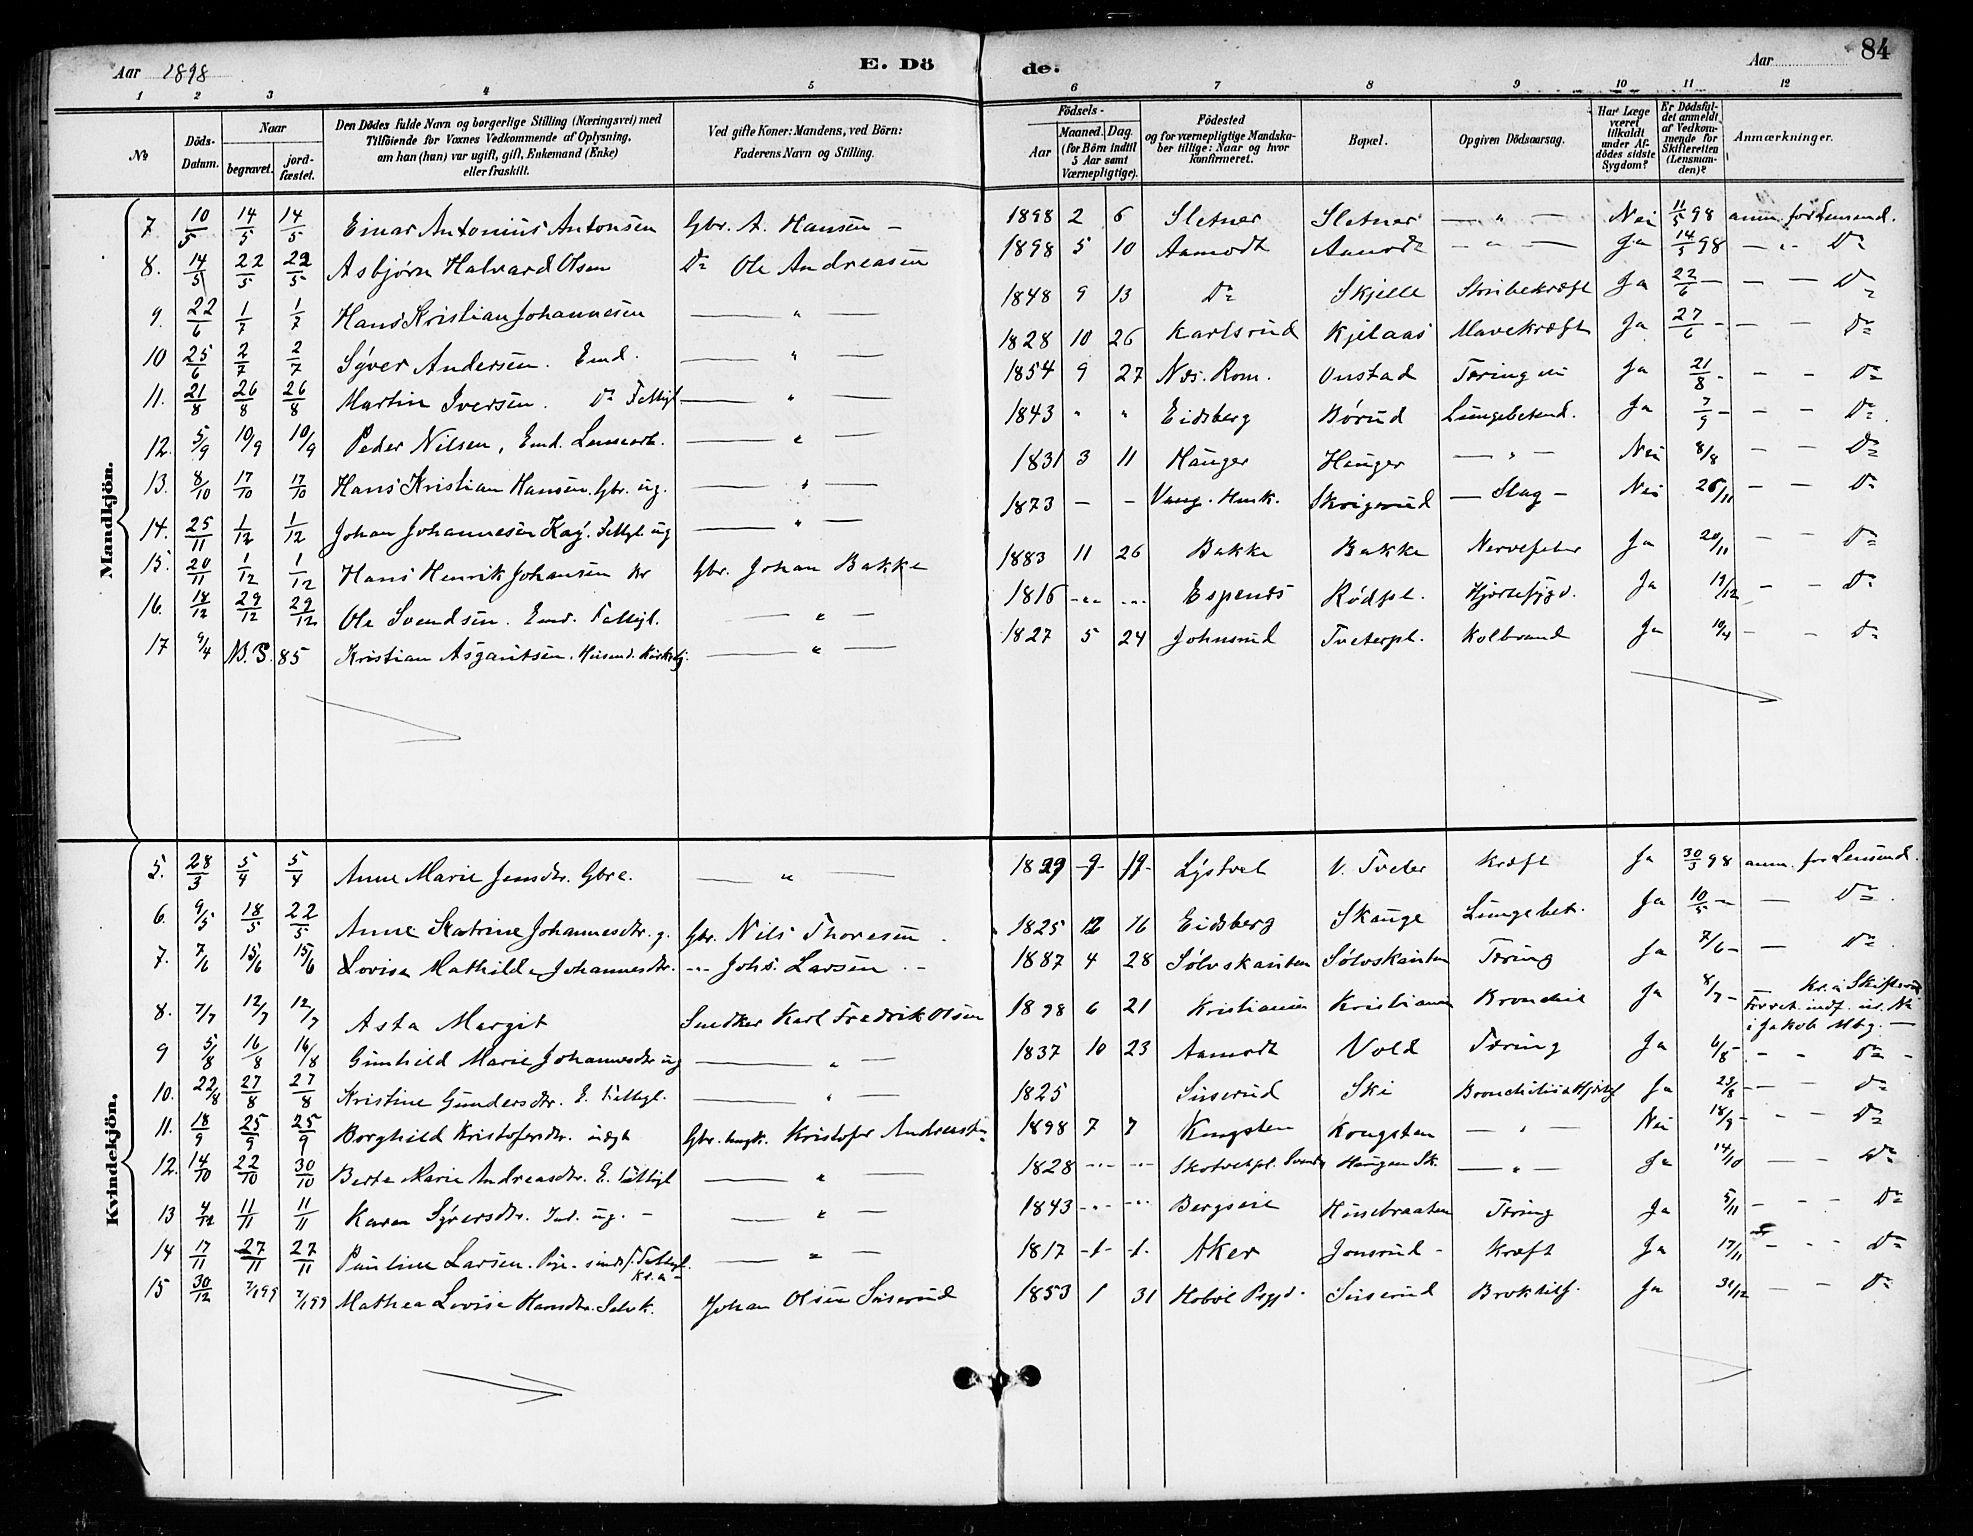 Aar 1898
E. Dö
de.
Aar
84
1 2 3 4 5 6 7 8 9 10 11 12
No
Döds-Datum.
Naar
begravet.
jord-fæstet.
Den Dödes fulde Navn og borgerlige Stilling (Næringsvei) med
Tilföiende for Voxnes Vedkommende af Oplysning,
om han (hun) var ugift, gift, Enkemand (Enke)
eller fraskilt.
Ved gifte Koner: Mandens, ved Börn:
Faderens Navn og Stilling.
Födsels-
Aar
Maaned. Dag.
(for Börn indtil
5 Aar samt
Værnepligtige).
Födested
og for værnepligtige Mandska-
ber tillige: Naar og hvor
konfirmeret.
Bopæl.
Opgiven Dödsaarsag.
Har Læge
været
tilkaldt
under Af-
dödes sidste
Sygdom?
Er Dödsfal-
det anmeldt
af Vedkom-
mende for
Skifteretten
(Lensman-
den)?
Anmærkninger.
Mandkjön.
7. 10/5 14/5 14/5 Einar Antonius Antonsen Gbr. A. Hansen – 1898 2 6 Sletner Sletner — " — Nei 11/5 98 anm. for Lensmd.
8. 14/5 22/5 22/5 Asbjørn Halvard Olsen Do Ole Andreasen 1898 5 10 Aamodt Aamodt — " — Ja 14/5 98 — " — Do
9. 22/6 1/7 1/7 Hans Kristian Johannesen — " — 1848 9 13 Do Skjelle Strubekræft Ja 22/6 — — — Do
10 25/6 2/7 2/7 Syver Andersen. Emd. — " — 1828 10 26 Karlsrud Kjelaas Mavekræft Ja 27/6 - — — Do
11. 21/8 26/8 26/8 Martin Iversen. Do Fattigl. — " — 1854 9 27 Næs. Rom. Onstad Tæring Ja 21/8 - — — Do
12. 5/9 10/9 10/9 Peder Nilsen, Emd. — " — 1843 " " Eidsberg Børud Lungebetend. Ja 7/9 — — — Do
13. 8/10 17/10 17/10 Hans Kristian Hansen. Gbr. ug. — " — 1831 3 11 Hauger Hauger — " — Nei 8/8 — — Do
14. 25/11 1/12 1/12 Johan Johannesen Fattigl. ug — " — 1873 — — Vang. Skrigsrud — Slag — Nei 26/11 — — Do
15. 20/11 1/12 1/12 Hans Henrik Johansen Gbr. Johan Bakke 1883 11 26 Bakke Bakke Nervefeber Ja 20/11 — — Do
16. 18/12 29/12 29/12 Ole Svendsen. Emd. Fattigl. — " — 1816 -"- -"- Rødspl. Ja 19/12 — — Do
17 9/4 N.B. S. 85 Kristian Husmd. — " — 1827 5 24 Johnsrud Tveterpl. Kolbrand Ja 10/4 — — Do
Kvindekjön.
5. 28/3 5/4 5/4 Anne Marie Jensdtr. Gbre. — " — 1829 V. Tveter Kræft Ja 30/3 98 anm. for Lensmd.
6. 9/5 18/5 22/5 Anne Katrine Johannesdtr. g. Gbr. Nils Thoresen. 1825 12 16 Eidsberg Skauge Lungebet. Ja 10/5 — — Do
7. 7/6 15/6 15/6 Lovise Mathilde Johannesdtr. -"- Johs. Larsen. — 1887 4 28 Sølvskauten Sølvskauten Tæring Ja 7/6 — — Do
8. 7/7 12/7 12/7 Asta Margit Snedker Karl Fredrik Olsen 1898 6 21 Kristiania Kristiania Ja 8/7 — Kr.a
i Jakob Mbg. —
9 5/8 16/8 16/8 Gunhild Marie Johannesdtr ug — " — 1837 10 23 Aamodt Vold Tæring Ja 6/8 - — — Do
10. 22/8 27/8 27/8 Kristine Gundersdtr. E. Fattigl. — " — 1825 Siserud Ski Ja 23/8 — — Do
11. 18/9 25/9 25/9 Borghild Kristofersdtr. Gbr. Kristofer Andreas 1898 7 7 Kongsten Kongsten — " — Nei 18/9 — — Do
12. 14/10 22/10 30/10 Berte Marie Andreasdtr. E. Fattigl — " — 1828 -"- -"- Haugen Sk. — " — Ja 14/10 — — Do
13 4/12 11/11 11/11 Karen Syversdtr. Ind. ug. — — " — 1843 -"- -"- Husebraaten Tæring Ja 5/11 — — Do
14 17/11 27/11 27/11 Pauline Larsen. Pige. Fattigl. — " — 1817 Aker Jonsrud - Kræft Ja 17/11 — — Do
Kr.a
15 30/12 7/1 99 7/1 99 Mathea Lovise Hansdtr. Johan Olsen Siserud 1853 1 31 Hobøl Siserud Ja 31/12 — — Do